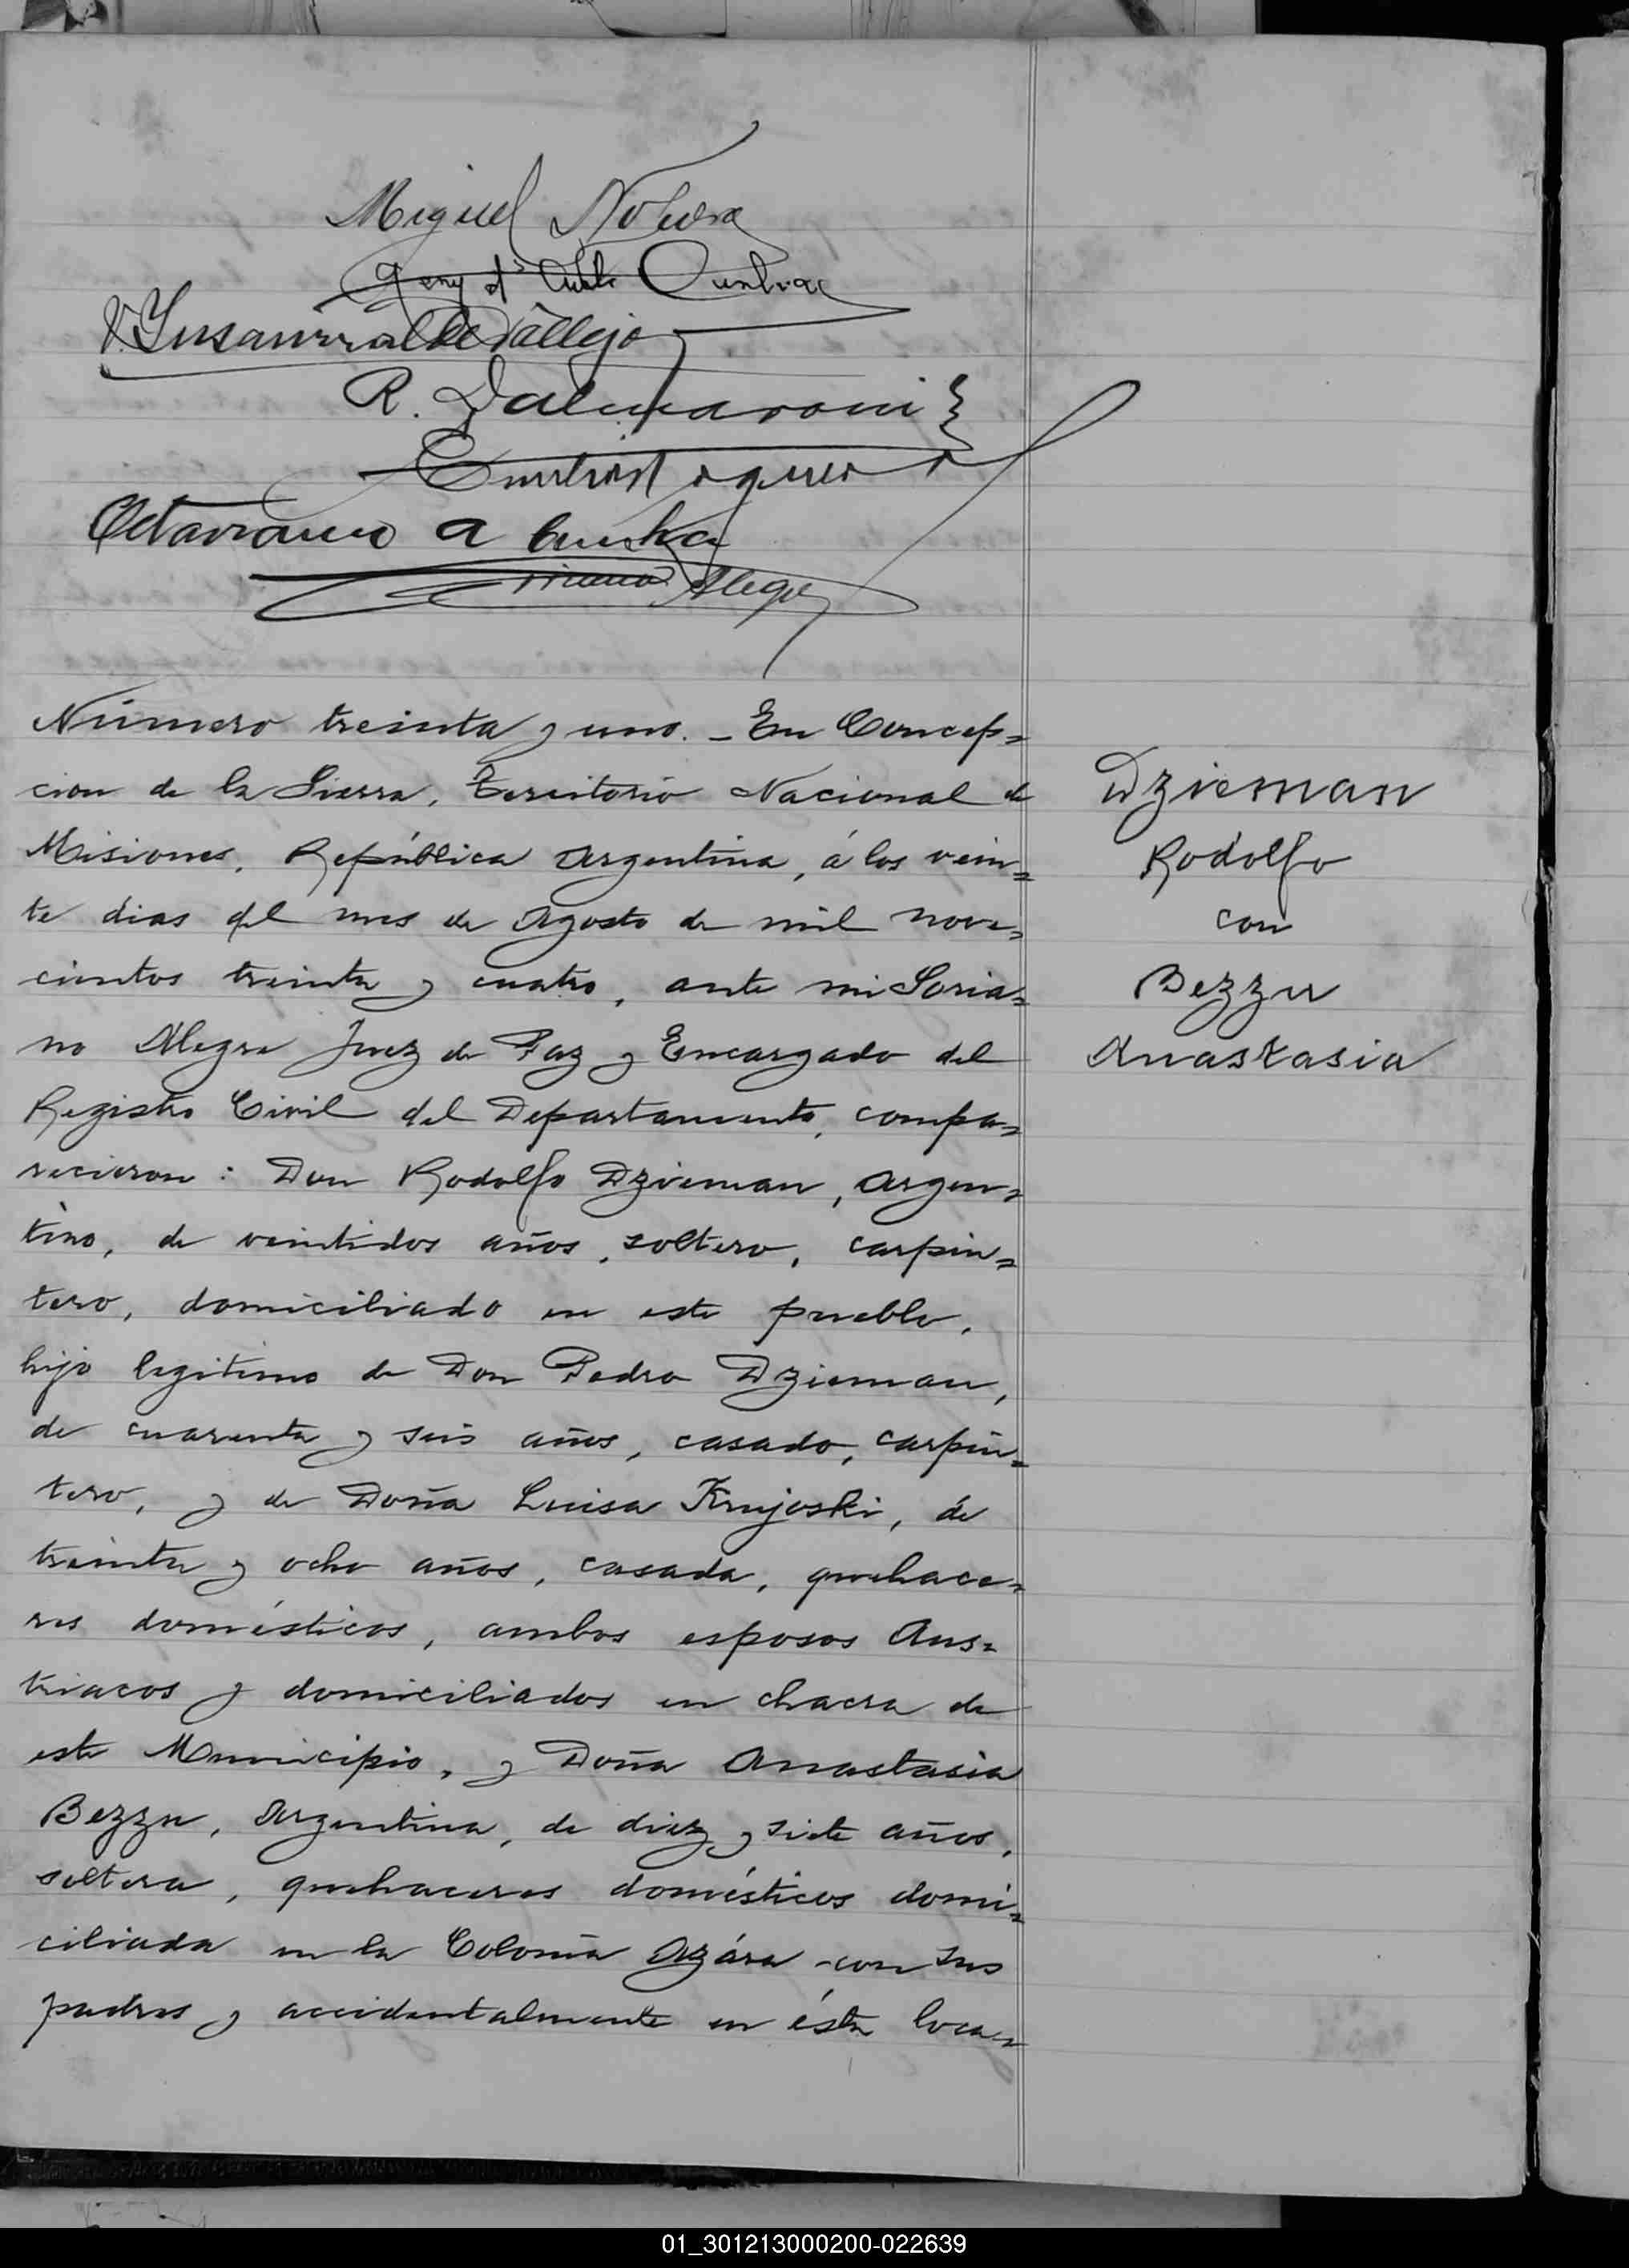 Miguel
Vallejo
R. Dalmaroni
Octaviano a Cunha
Alegre
Número treinta y uno. - En Concep=
cion de la Sierra, Territorio Nacional de
Misiones, República Argentina, á los vein=
te dias del mes de Agosto de mil nove=
cientos treinta y cuatro, ante mi Soria=
no Alegre Juez de Paz y Encargado del
Registro Civil del Departamento, compa=
recieron: Don Rodolfo Dzieman, Argen=
tino, de veintidos años, soltero, carpin=
tero, domiciliado en este pueblo,
hijo legitimo de Don Pedro Dzieman,
de cuarenta y seis años, casado, carpin=
tero, y de Doña Luisa Krujoski, de
treinta y ocho años, casada, quehace=
res domésticos, ambos esposos Aus=
triacos y domiciliados en chacra de
este Municipio, y Doña Anastasia
Bezzu, Argentina, de diez y siete años,
soltera, quehaceres domésticos domi=
ciliada en la Colonia Azára con sus
padres y accidentalmente en ésta loca=
Dzieman
Rodolfo
con
Bezzu
Anastasia
01_301213000200-022639